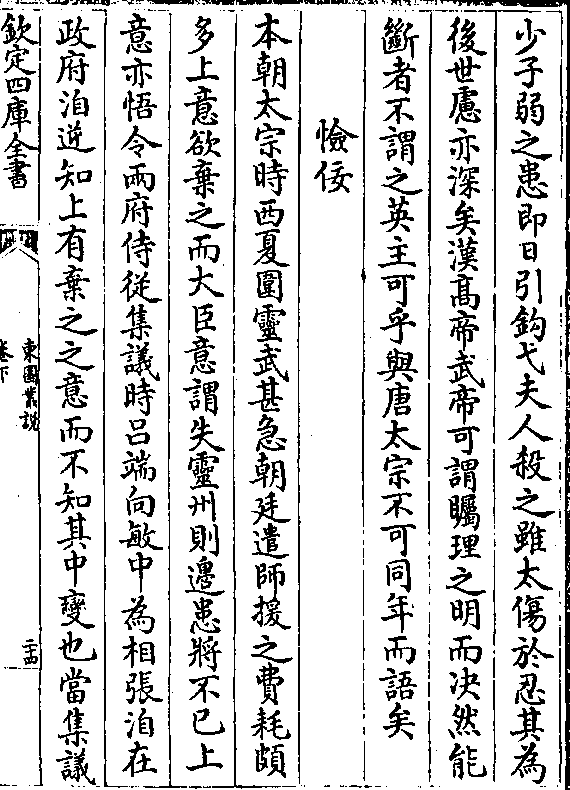 少子弱之患即日引鈎弋夫人殺之雖太傷於忍其為
後世慮亦深矣漢髙帝武帝可謂矚理之明而决然能
斷者不謂之英主可乎與唐太宗不可同年而語矣
憸佞
本朝太宗時西夏圍靈武甚急朝廷遣師援之費耗頗
多上意欲棄之而大臣意謂失靈州則邊患將不已上
意亦悟令兩府侍從集議時吕端向敏中為相張洎在
政府洎逆知上有棄之之意而不知其中變也當集議
欽定四庫全書
東園叢說
卷下
二十四